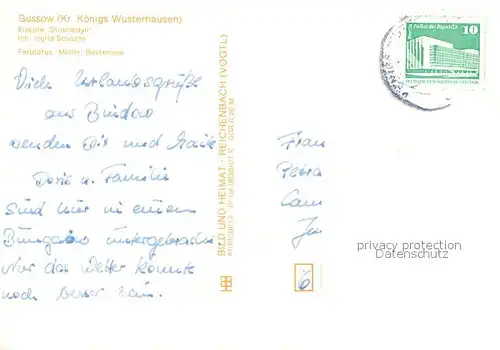 Gussow (Kr. Königs Wusterhausen)
Eisdiele "Strandidyll"
Inh. Ingrid Schlutte
Farbfotos: Mohn, Bestensee
Viele Urlaubsgrüße
aus Bindow
senden Dir und Maik
Doris u. Familie
Sind hier in einem
Bungalow untergebracht
Nur das Wetter könnte
noch besser sein.
BILD UND HEIMAT · REICHENBACH (VOGTL)
Palast der Republik
10
Frau
Petra
privacy protection
Datenschutz
6